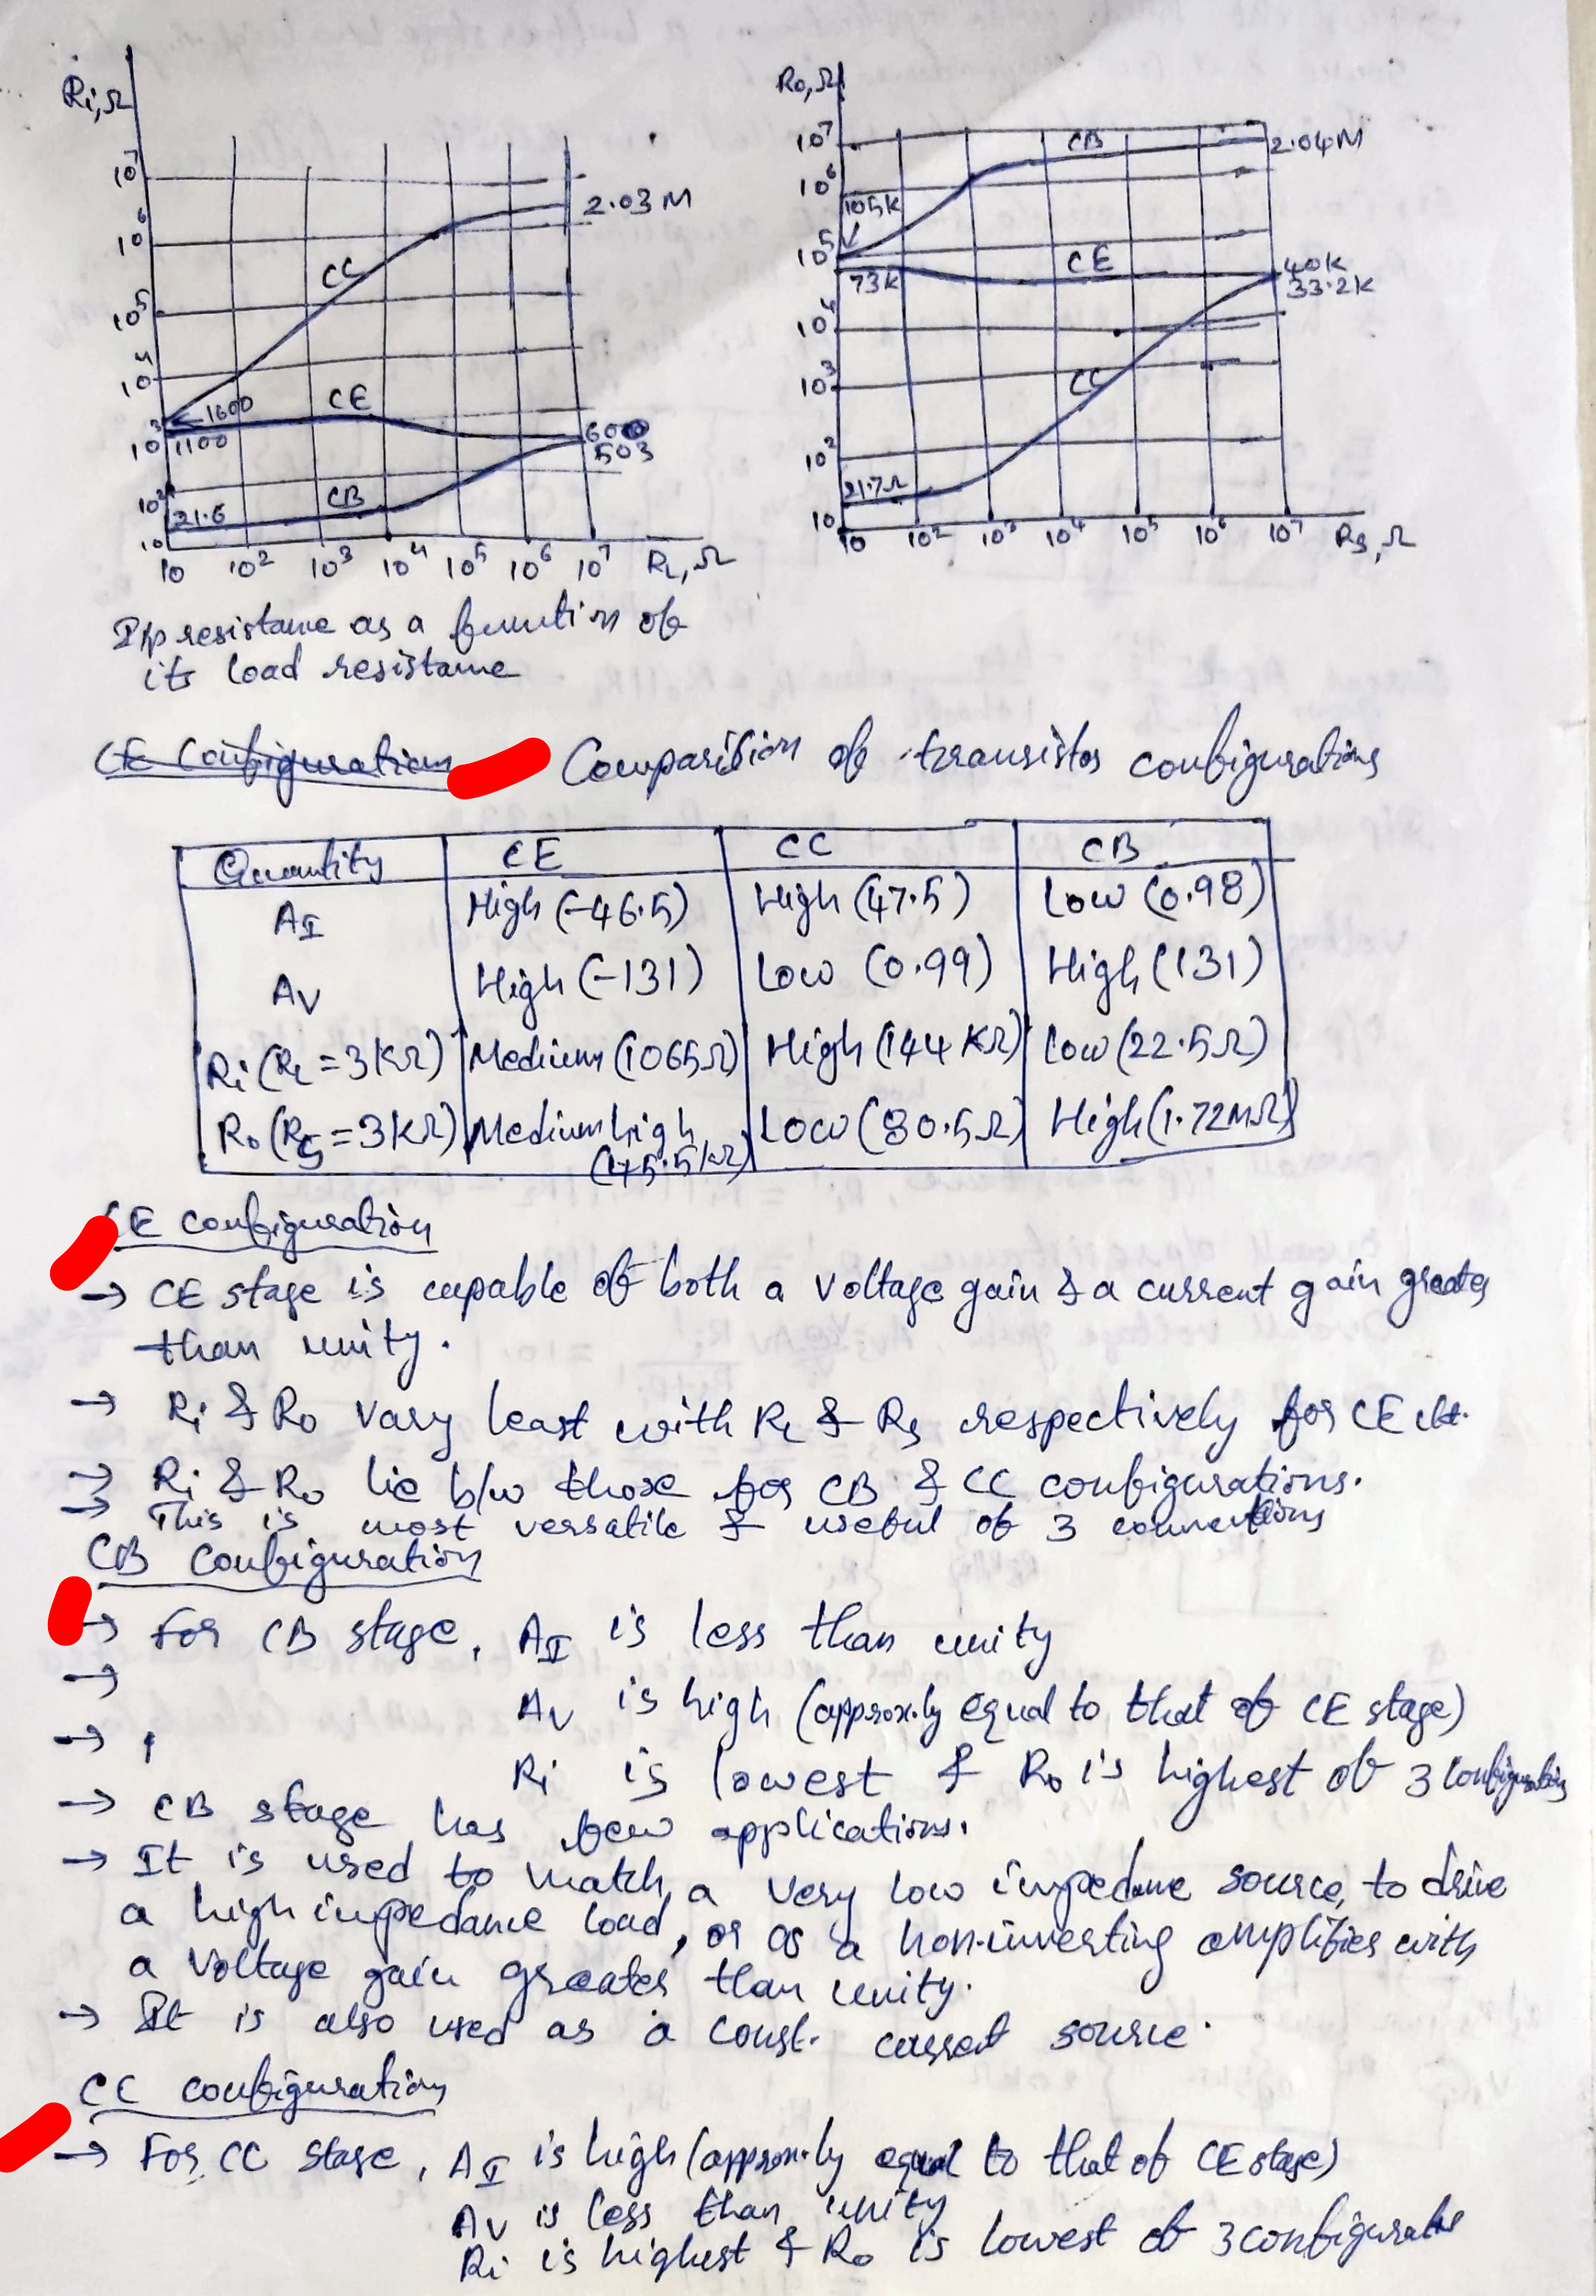 Ri,Ω
10⁷
10⁶
10⁵
10⁴
10³
10²
10
2.03 M
CC
1600
CE
1100
600
503
CB
21.6
10 10² 10³ 10⁴ 10⁵ 10⁶ 10⁷ RL,Ω
I/p resistance as a function of
its load resistance
Ro,Ω
10⁷
10⁶
10⁵
10⁴
10³
10²
10
CB
2.04M
105K
CE
73K
40K
33.2K
CC
21.7Ω
10 10² 10³ 10⁴ 10⁵ 10⁶ 10⁷ Rs,Ω
CE Configuration Comparition of transistor configurations
Quantity CE CC CB
AI High (-46.5) High (47.5) Low (0.98)
AV High (-131) Low (0.99) High (131)
Ri (RL = 3KΩ) Medium (1065Ω) High (144 KΩ) Low (22.5Ω)
Ro (RS = 3KΩ) Medium high Low (80.5Ω) High (1.72MΩ)
CE configuration
→ CE stage is capable of both a voltage gain & a current gain greater
than unity.
→ Ri & Ro vary least with RL & Rs respectively for CE ckt.
→ Ri & Ro lie b/w those for CB & CC configurations.
→ This is most versatile & useful of 3 connections
CB Configuration
→ For CB stage, AI is less than unity
→ AV is high (approx.ly equal to that of CE stage)
→ Ri is lowest & Ro is highest of 3 configurations
→ CB stage has few applications.
→ It is used to match a very low impedance source, to drive
a high impedance load, or as a non-inverting amplifier with
a voltage gain greater than unity.
→ It is also used as a const. current source.
CC configuration
→ For CC stage, AI is high (approx.ly equal to that of CE stage)
AV is less than unity
Ri is highest & Ro is lowest of 3 configurations